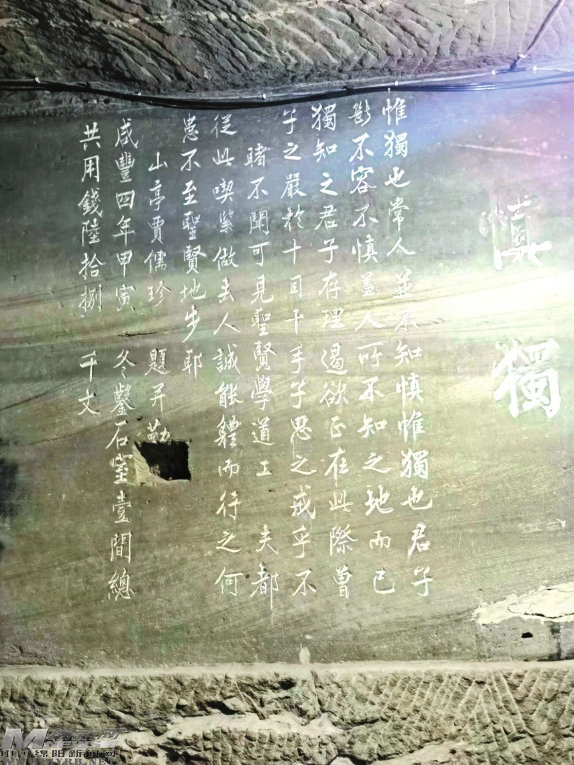 慎獨
惟獨也常人並不知慎惟獨也君子
斷不容不慎蓋人所不知之地而已
獨知之君子存理遏欲正在此際曾
子之嚴於十目十手子思之戒乎不
睹不聞可見聖賢學道工夫都
從此喫緊做去人誠能體而行之何
患不至聖賢地步耶
山亭賈儒珍題并勒
咸豐四年甲寅冬鑿石室壹間總
共用錢陸拾捌千文